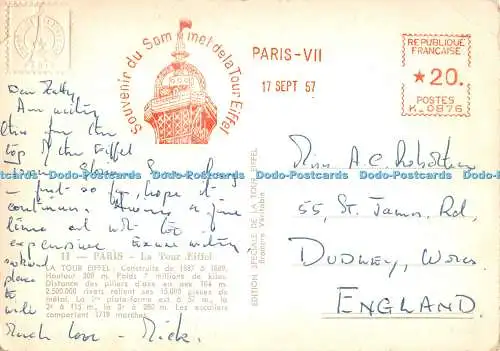 Souvenir du Sommet de la Tour Eiffel
PARIS-VII
17 SEPT 57
REPUBLIQUE
FRANÇAISE
★20.
POSTES
K.0876
Am writing
this for the
top of the Eiffel
– just so far, hope it
continues. Having a fine
time but not too
expensive. Excuse writing
place
to
write
Much love – Mick.
11 — PARIS - La Tour Eiffel
LA TOUR EIFFEL. Construite de 1887 à 1889.
Hauteur 300 m. Poids 7 millions de kilos.
Distance des piliers d'axe en axe 104 m.
2.500.000 rivets relient ses 15.000 pièces de
métal. La 1re plate-forme est à 57 m., la
2e à 115 m., la 3e à 280 m. Les escaliers
comportent 1719 marches.
EDITION SPECIALE DE LA TOUR EIFFEL
Bromure Véritable
Miss A.C. Robertson
55, St. James Rd,
DUDLEY, Worcs
ENGLAND.
Dodo-Postcards Dodo-Postcards Dodo-Postcards Dodo-Postcards